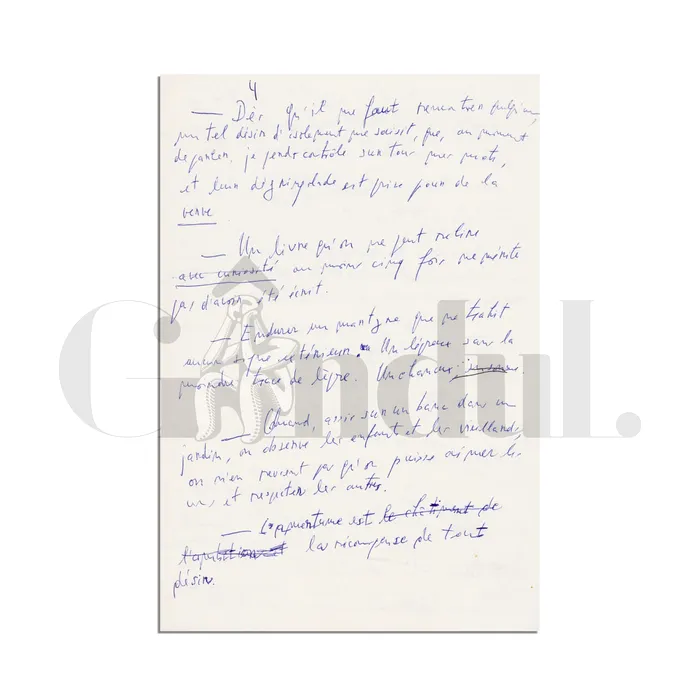 4
— Dès qu'il me faut rencontrer quelqu'un,
un tel désir d'isolement me saisit, que, au moment
de parler, je perds contrôle sur tous mes mots,
et leur dégringolade est prise pour de la
verve
— Un livre qu'on ne peut relire
avec curiosité au moins cinq fois ne mérite
pas d'avoir été écrit.
— Endurer un martyre que ne trahit
aucun signe extérieur. Un lépreux sans la
moindre trace de lèpre. Un chanceux
— Quand, assis sur un banc dans un
jardin, on observe les enfants et les vieillards,
on n'en revient pas qu'on puisse aimer les
uns, et respecter les autres.
— L'amertume est le châtiment de
la récompense de tout
désir.
Gândul.